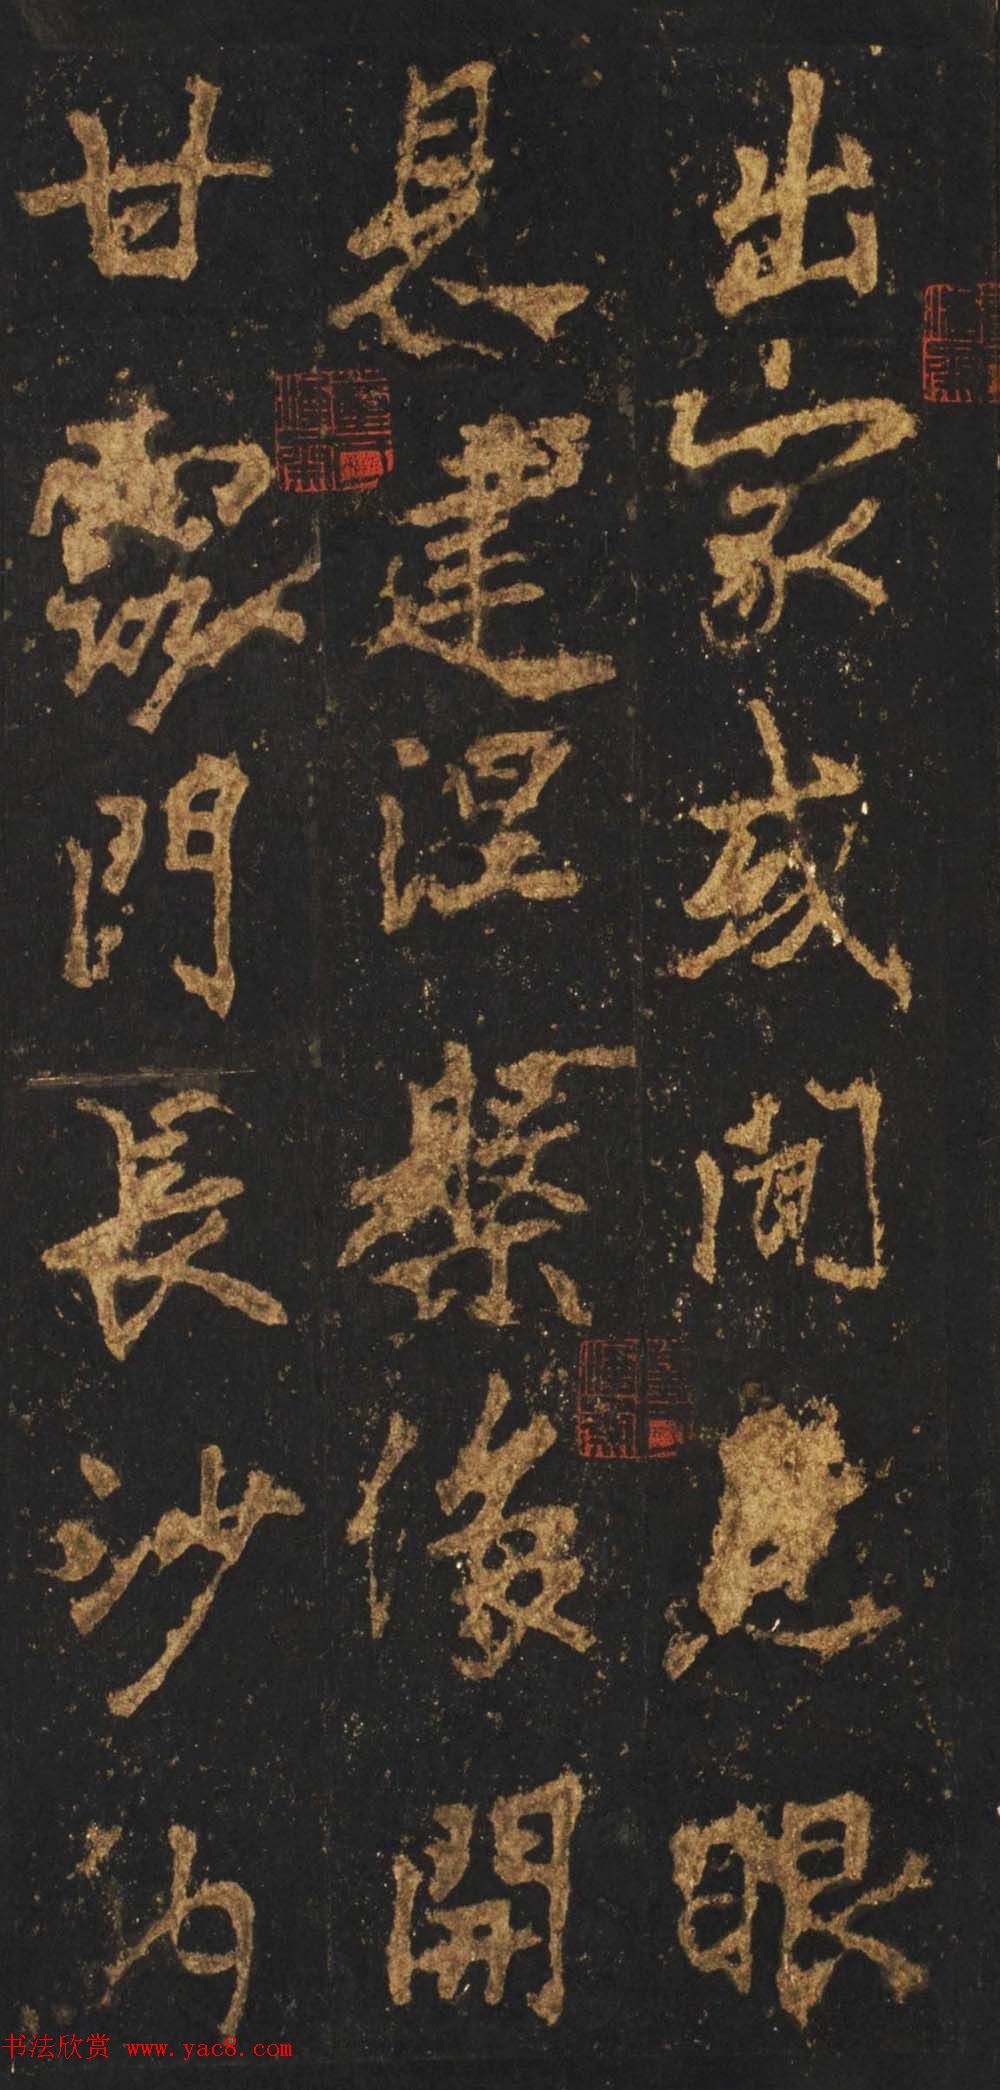 出家或聞眼
見建涅槃像開
甘露門長沙内
书法欣赏 www.yac8.com